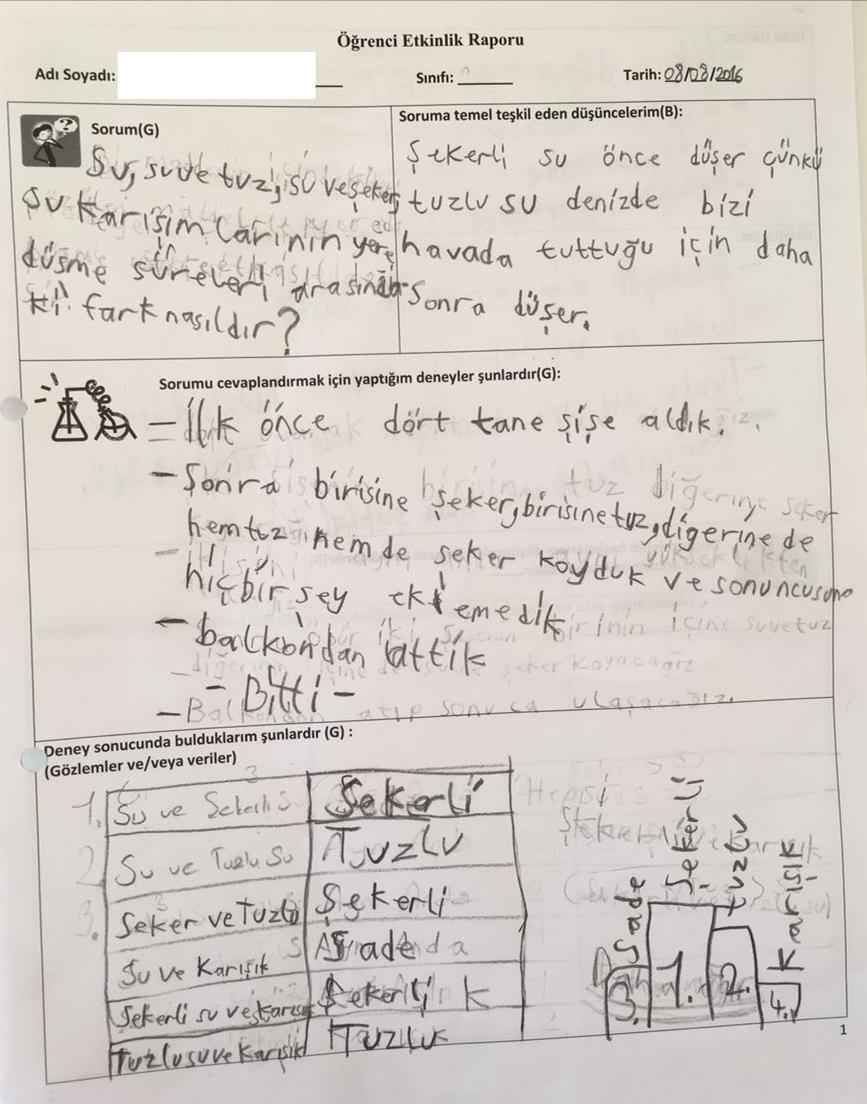 Öğrenci Etkinlik Raporu
Adı Soyadı:
Sınıfı:
Tarih: 08/08/2016
Sorum(G)
Su, su ve tuz, su ve şeker,
su karışımlarının yere
düşme süreleri arasında
ki fark nasıldır?
Soruma temel teşkil eden düşüncelerim(B):
Şekerli su önce düşer çünkü
tuzlu su denizde bizi
havada tuttuğu için daha
sonra düşer.
Sorumu cevaplandırmak için yaptığım deneyler şunlardır(G):
– İlk önce dört tane şişe aldık.
– Sonra birisine şeker, birisine tuz, digerine de
hem tuz hem de seker koyduk ve sonuncusuna
hiçbir sey eklemedik
– balkondan attik
– Bitti –
– Balkondan atıp sonuca ulaşacağız.
Deney sonucunda bulduklarım şunlardır (G) :
(Gözlemler ve/veya veriler)
1. Su ve Sekerli Su Şekerli
2. Su ve Tuzlu Su Tuzlu
3. Şeker ve Tuzlu Şekerli
Su ve Karışık Sade
Şekerli su ve karışık Şekerli
Tuzlu su ve Karışık Tuzlu
Sade Şekerli tuzlu karışık
3. 1. 2. 4.
1